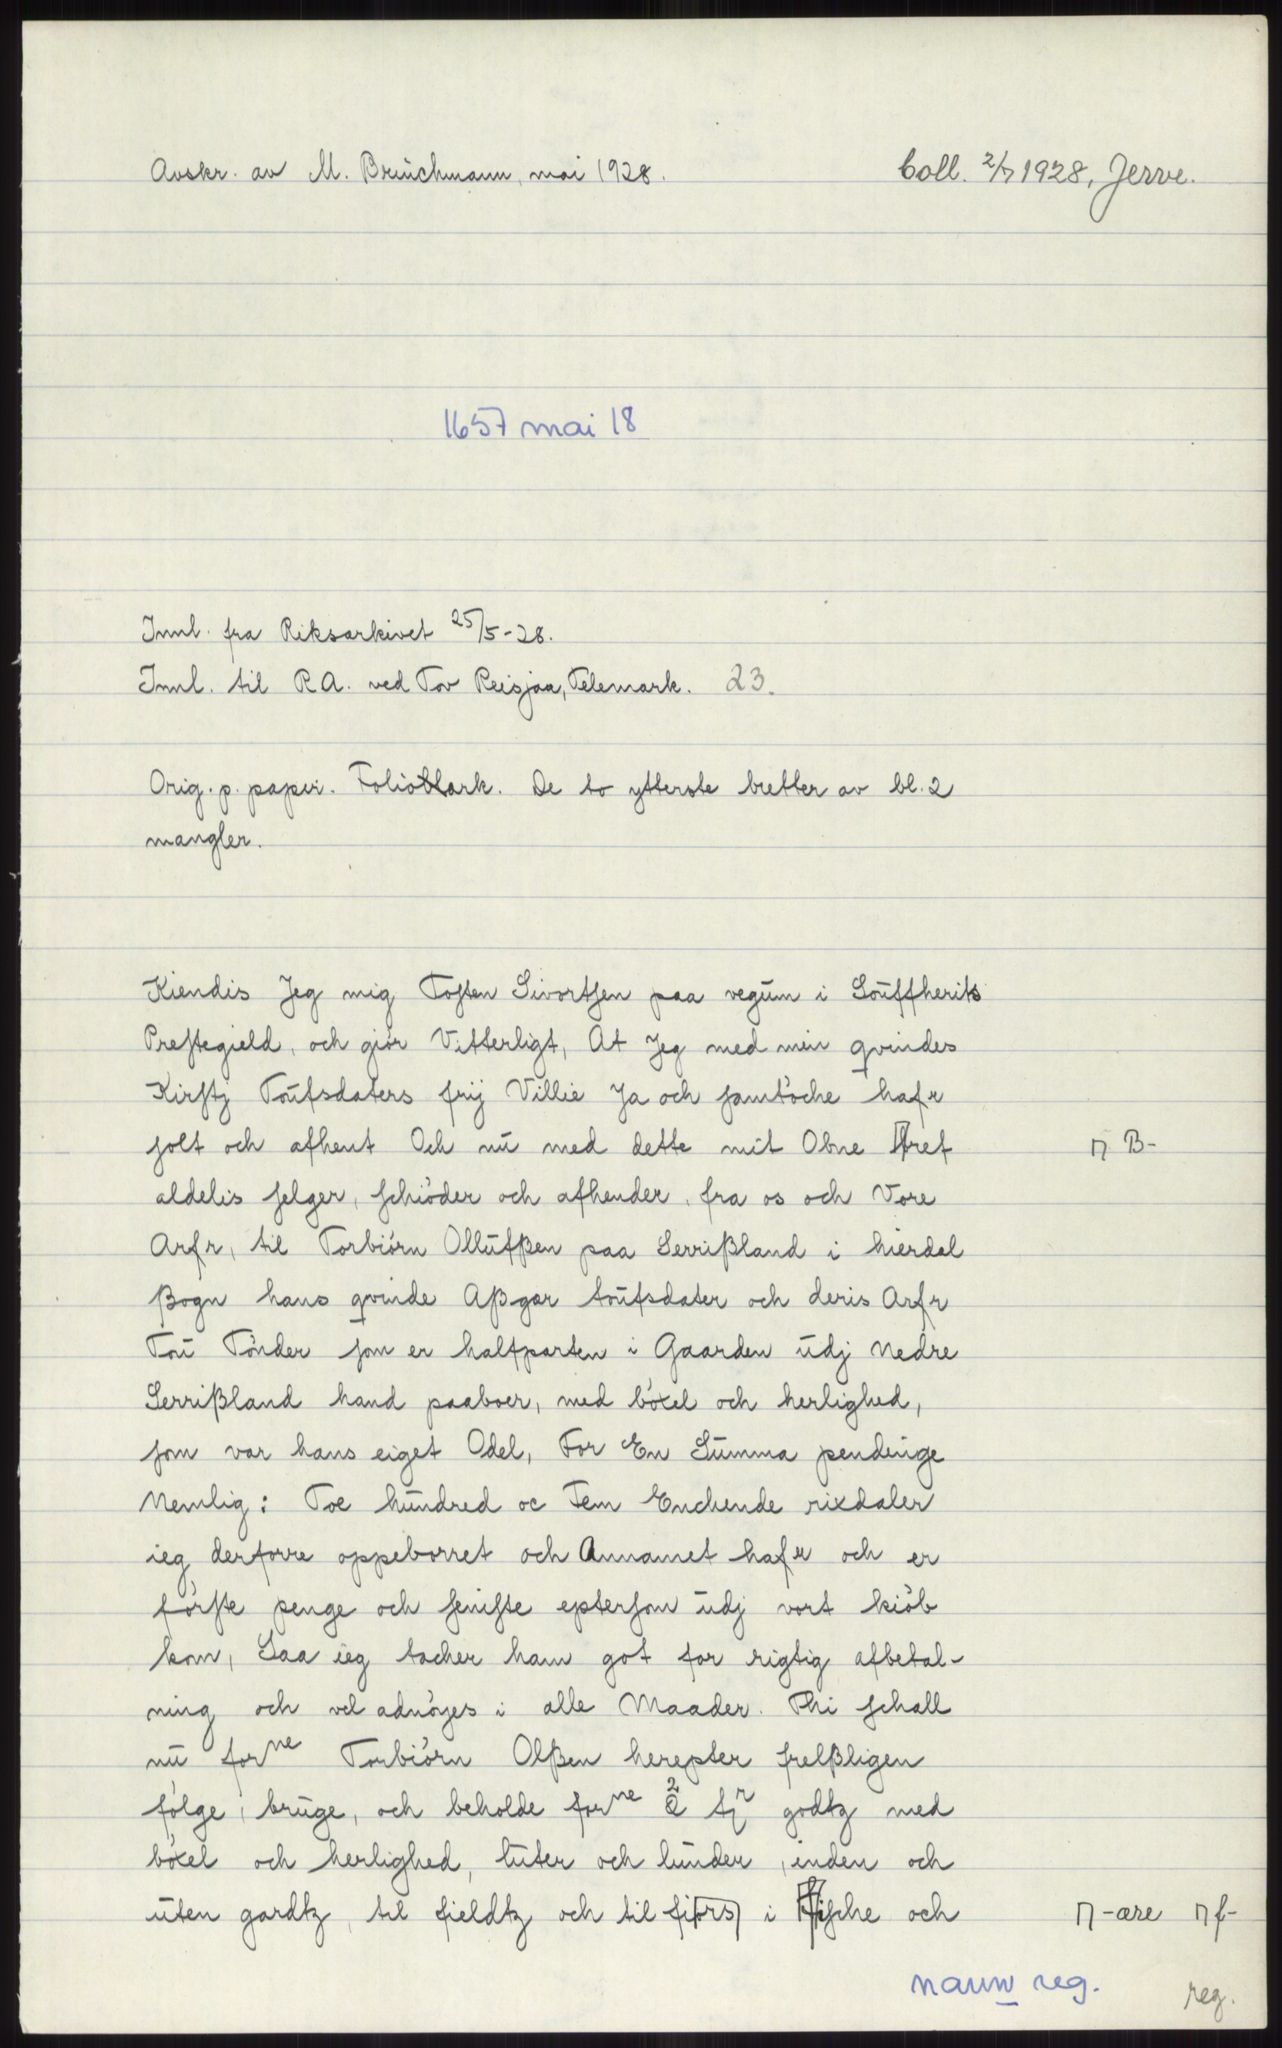 Avskr. av M. Brüchmann, mai 1928.
Coll. 2/7 1928, Jerve.
1657 mai 18
Innl. fra Riksarkivet 25/5-28.
Innl. til R.A. ved Tov Reisjaa, Telemark. 23.
Orig. p. papir. Folioark. De to ytterste bretter av bl. 2
mangler.
Kiendis Jeg mig Toſten Sivortſen paa vegum i Souffherits
Preſtegield, och giör Vitterligt, At Jeg med min qvindes
Kirſtj Toufsdaters frij Villie Ja och ſamtöche hafr
ſolt och afhent Och nu med dette mit Obne ref
⊓ B-
aldelis ſelger, ſchiöder och afhender, fra os och Vore
Arfr, til Torbiörn Ollufßen paa Serrißland i hierdal
ßogn hans qvinde Aßgær toufsdater och deris Arfr
Tou Tönder ſom er halfparten i Gaarden udj Nedre
Serrißland hand paaboer, med böxel och herlighed,
ſom var hans eiget Odel, For En Summa pendinge
Nemlig: Toe hundred oc Fem Enchende rixdaler
ieg derforre oppeborret och Annamet hafr och er
förſte penge och ſeniſte epterſom udj vort kiöb
kom, Saa ieg tacher ham got for rigtig afbetal-
ning och vel adnöyes i alle Maader. Thi ſchall
nu forne Torbiörn Olßen herepter frelßligen
fölge, bruge, och beholde forne 2 tr godtz med
böxel och herlighed, luter och lunder, inden och
uten gardtz, til fieldtz och til fiors i fiſche och
⊓ -are ⊓ f-
navn reg.
reg.